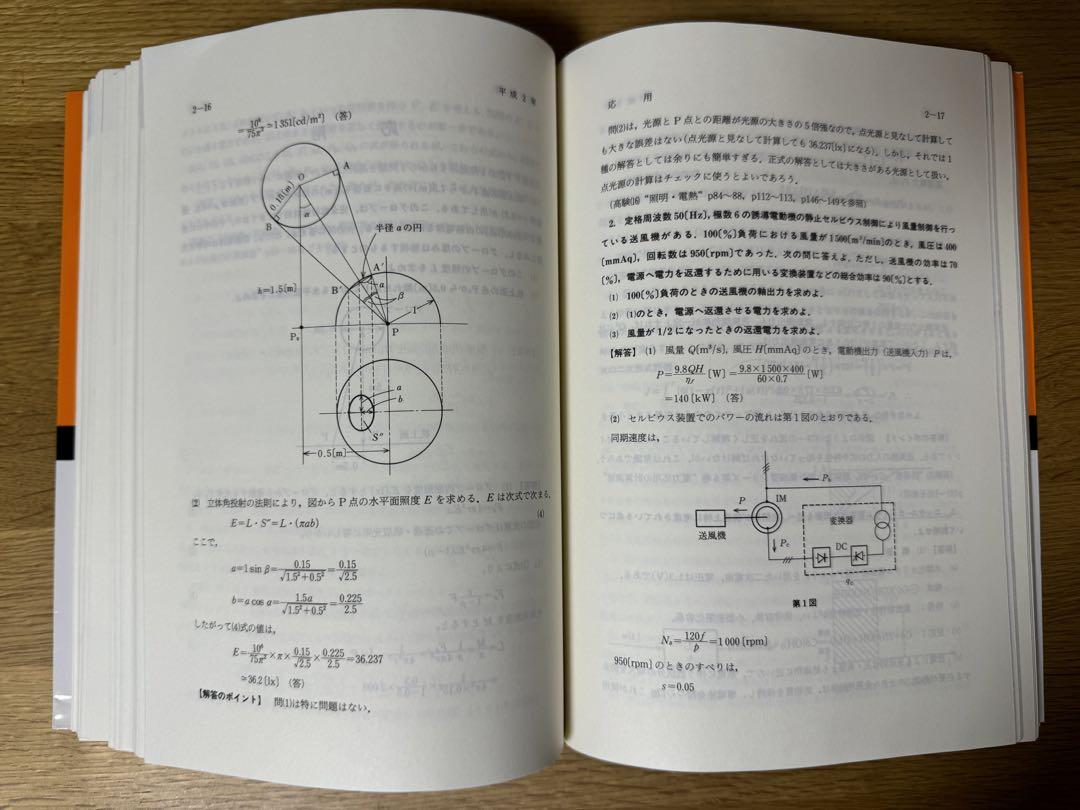 2—16
平成2年
= 10⁶/75π² ≃ 1351[cd/m²] (答)
A
O
0.18[m]
α
B
半径aの円
A′
B′
a
β
h=1.5[m]
1
P₀
P
a
b
S″
0.5[m]
② 立体角投射の法則により,図からP点の水平面照度Eを求める.Eは次式で求まる.
E=L・S″=L・(πab) (4)
ここで,
a=1 sin β= 0.15/√(1.5²+0.5²) = 0.15/√2.5
b=a cos α= 1.5a/√(1.5²+0.5²) = 0.225/2.5
したがって(4)式の値は,
E= 10⁶/75π² ×π× 0.15/√2.5 × 0.225/2.5 =36.237
≃36.2[lx] (答)
【解答のポイント】 問(1)は特に問題はない.
応 用
2—17
問(2)は,光源とP点との距離が光源の大きさの5倍強なので,点光源と見なして計算して
も大きな誤差はない(点光源と見なして計算しても36.237[lx]になる).しかし,それでは1
種の解答としては余りにも簡単すぎる.正式の解答としては大きさがある光源として扱い,
点光源の計算はチェックに使うとよいであろう.
(高験⒃“照明・電熱” p84〜88, p112〜113, p146〜149を参照)
2. 定格周波数50[Hz],極数6の誘導電動機の静止セルビウス制御により風量制御を行っ
ている送風機がある.100[%]負荷における風量が1500[m³/min]のとき,風圧は400
[mmAq],回転数は950[rpm]であった.次の問に答えよ.ただし,送風機の効率は70
[%],電源へ電力を返還するために用いる変換装置などの総合効率は90[%]とする.
(1) 100[%]負荷のときの送風機の軸出力を求めよ.
(2) (1)のとき,電源へ返還させる電力を求めよ.
(3) 風量が1/2になったときの返還電力を求めよ.
【解答】 (1) 風量Q[m³/s],風圧H[mmAq]のとき,電動機出力(送風機入力)Pは,
P= 9.8QH/η_f [W] = 9.8×1500×400/60×0.7 [W]
=140[kW] (答)
(2) セルビウス装置でのパワーの流れは第1図のとおりである.
同期速度は,
P_b
P
IM
送風機
変換器
P_c
DC
η_c
第1図
N_s= 120f/p =1000[rpm]
950[rpm]のときのすべりは,
s=0.05